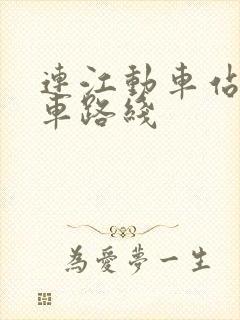 連江動車佔
車路綫
為愛夢一生